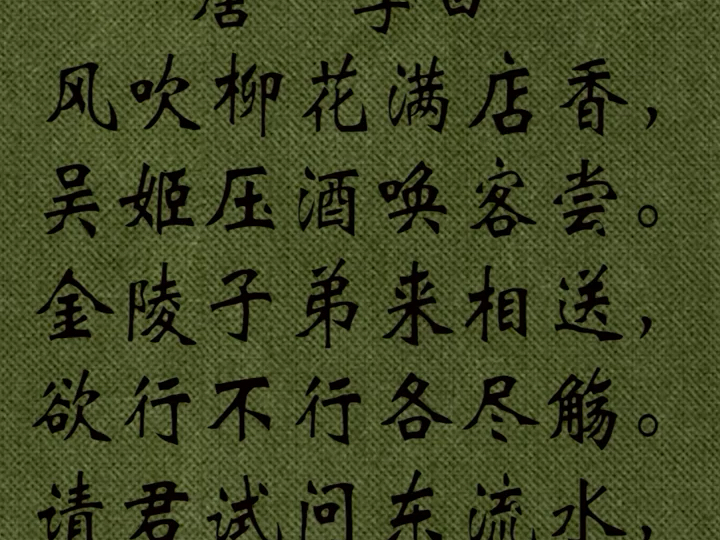 唐 李白
风吹柳花满店香，
吴姬压酒唤客尝。
金陵子弟来相送，
欲行不行各尽觞。
请君试问东流水，